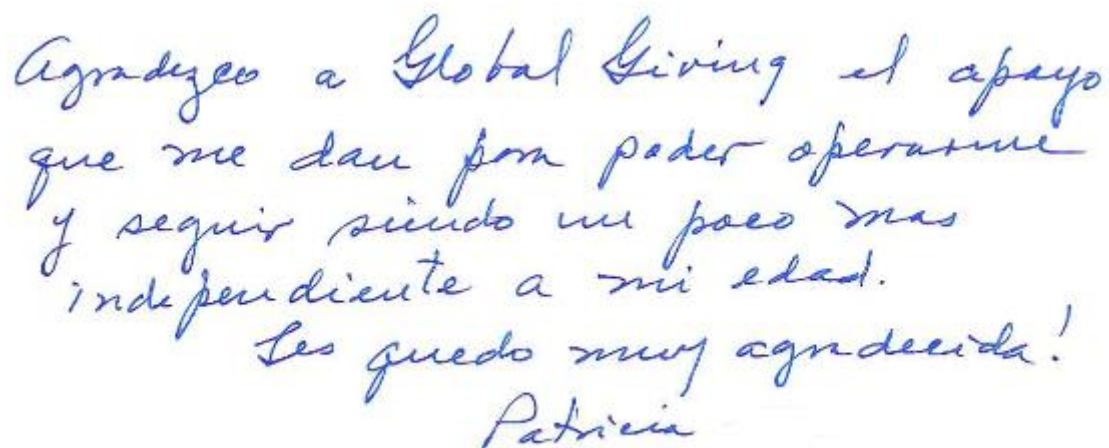 Agradezco a Global Giving el apoyo
que me dan para poder operarme
y seguir siendo un poco mas
independiente a mi edad.
Les quedo muy agradecida!
Patricia